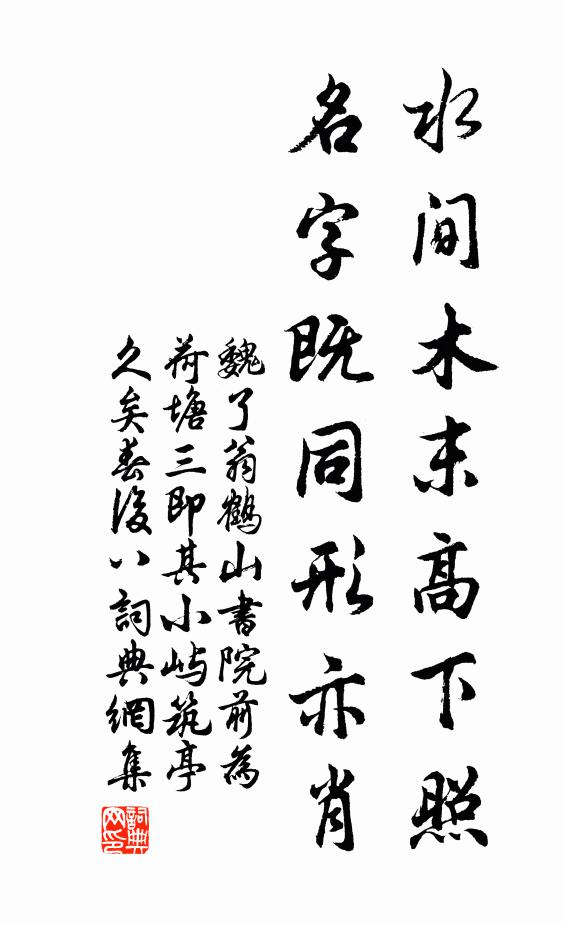 水间木末高下照
名字既同形亦肖
魏了翁鶴山書院前為
荷塘三即其小屿筑亭
久矣春後八詞典網集
詞典网印